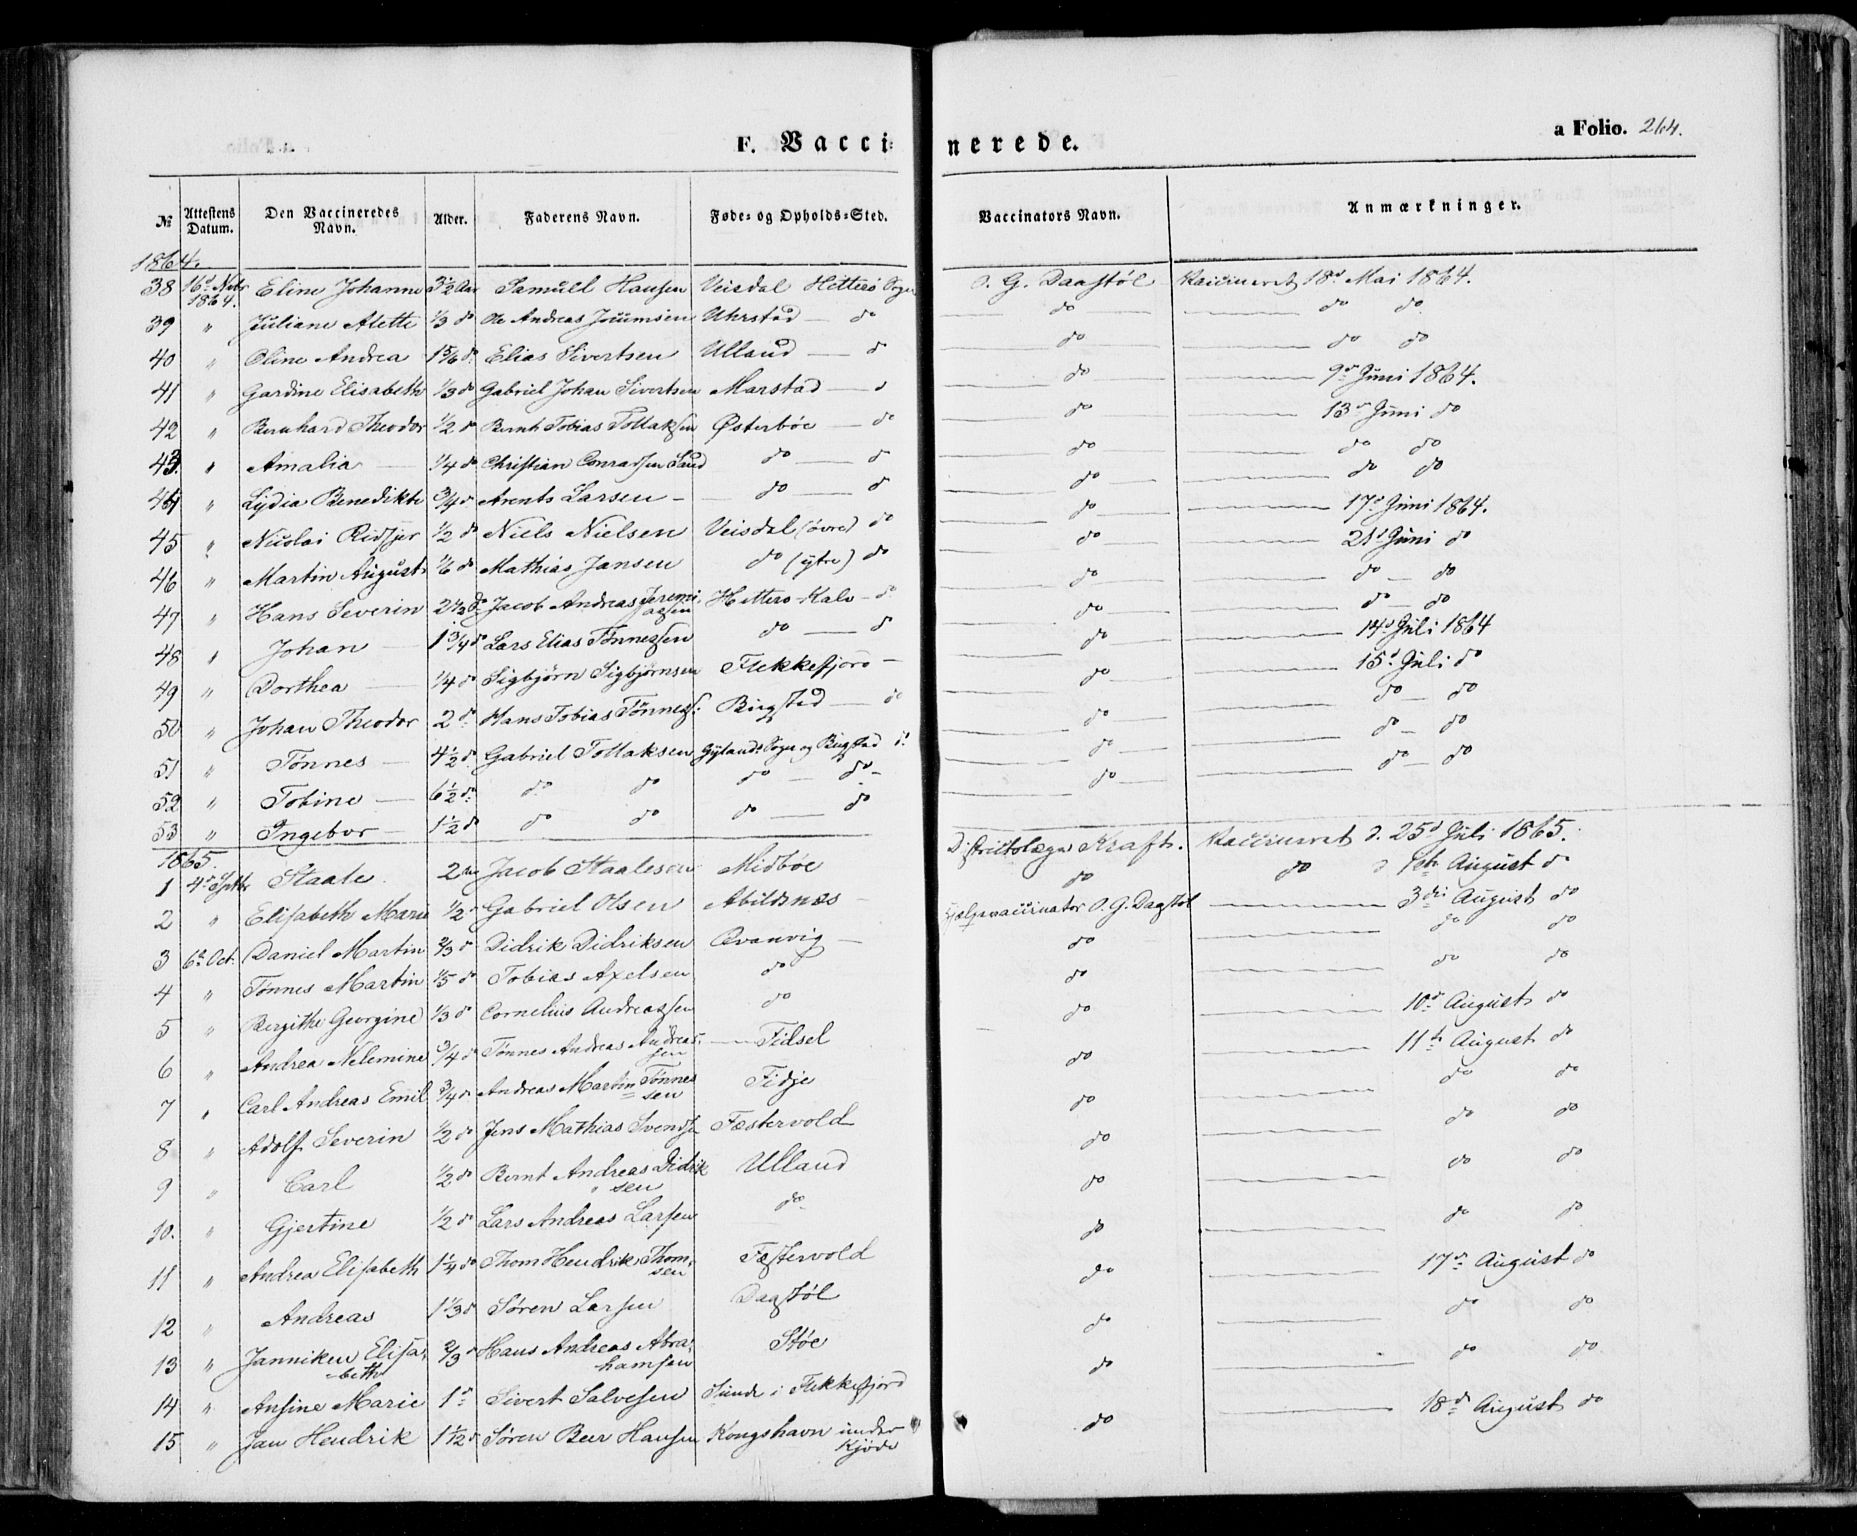 F. Vaccinerede. a Folio. 264.
№ Attestens Datum. Den Vaccineredes Navn. Alder. Faderens Navn. Føde- og Opholds-Sted. Vaccinators Navn. Anmærkninger.
1864.
38 16d Nvbr 1864. Eline Johanne 3½ Aar Samuel Hansen Veisdal Hitterø Sogn O. G. Daastøl Vaccineret 18d Mai 1864.
39 " Juliane Alette 1/3 do Ole Andreas Joumsen Uhrstad — do do — do do
40 " Oline Andrea 1 5/6 d. Elias Sivertsen Ulland — d do — do do
41 " Gardine Elisabeth 1/3 do Gabriel Johan Sivertsen Marstad — d do — 9de Juni 1864.
42 " Bernhard Theodor 1/2 d Bernt Tobias Tollaksen Østerbøe — do do — 13de Juni do
43 " Amalia — 1/4 do Christian Conradsen Sand do — d do — do do
44 " Lydia Benedikte 3/4 d Arents Larsen — do — d do — do do
45 " Nicolai Ridsjer 1/2 do Niels Nielsen Veisdal (øvre) do do — 17d Juni 1864.
46 " Martin August 1/6 do Mathias Jansen do (ytre) do do — 21d Juni do
47 " Hans Severin 2 1/3 do Jacob Andreas Jeremiassen Hitterø-Kalv — do do — do — do
48 " Johan — 1 3/4 do Lars Elias Tønnessen do — d do — do — do
49 " Dorthea — 1/4 do Sigbjørn Sigbjørnsen Flekkefjord — do — 14d Juli 1864
50 " Johan Theodor 2 do Hans Tobias Tønness: Birgsted — do do — 15d Juli do
51 " Tønnes — 4½ d. Gabriel Tollaksen Gylands Sogn og Bugstad d. do — do — do
52 " Tobine — 6½ do do do do — do — do — do — do
53 " Ingebor — 1½ do do do do — do do — do — do
1865.
1 4d Sptbr Staale 2 Jacob Staalesen Midbøe Distriktslæge Kraft. Vaccineret d. 25d Juli 1865.
2 " Elisabeth Marie 1/2 Gabriel Olsen Abildsnæs — do do d 1ste August do
3 6d Oct. Daniel Martin 2/3 d Didrik Didriksen Qvanvig — Hjælpevaccinator O. G. Dagstøl — 3die August do
4 " Tønnes Martin 1/5 do Tobias Axelsen do do — do do
5 " Bergithe Georgine 1/3 do Cornelius Andreassen do do — do do
6 " Andrea Nelemine 3/4 d Tønnes Andreas Andreassen — Fidsel do — 10de August do
7 " Carl Andreas Emil 3/4 d. Andreas Martin Tønnessen Fidje do — 11te August do
8 " Adolf Severin 1/2 do Jens Mathias Svends Fæstervold do — do do
9 " Carl 1/2 do Bernt Andreas Didriksen Ulland do — do do
10. " Gjertine 1/2 do Lars Andreas Larsen do do — do do
11 " Andrea Elisabeth 1¼ do Thom Hendrik Thomsen Fæstervold do — do do
12 " Andreas 1 1/3 d Søren Larsen Dagstøl do — 17de August do
13 " Janniken Elisabeth 2/3 d Hans Andreas Abrahamsen Støe do — do do
14 " Ansine Marie 1 d Sivert Salvesen Sunde i Flekkefjord do — do do
15 " Jan Hendrik 1½ d Søren Beer Hansen Kongshavn under Kjøde do — 18de August do